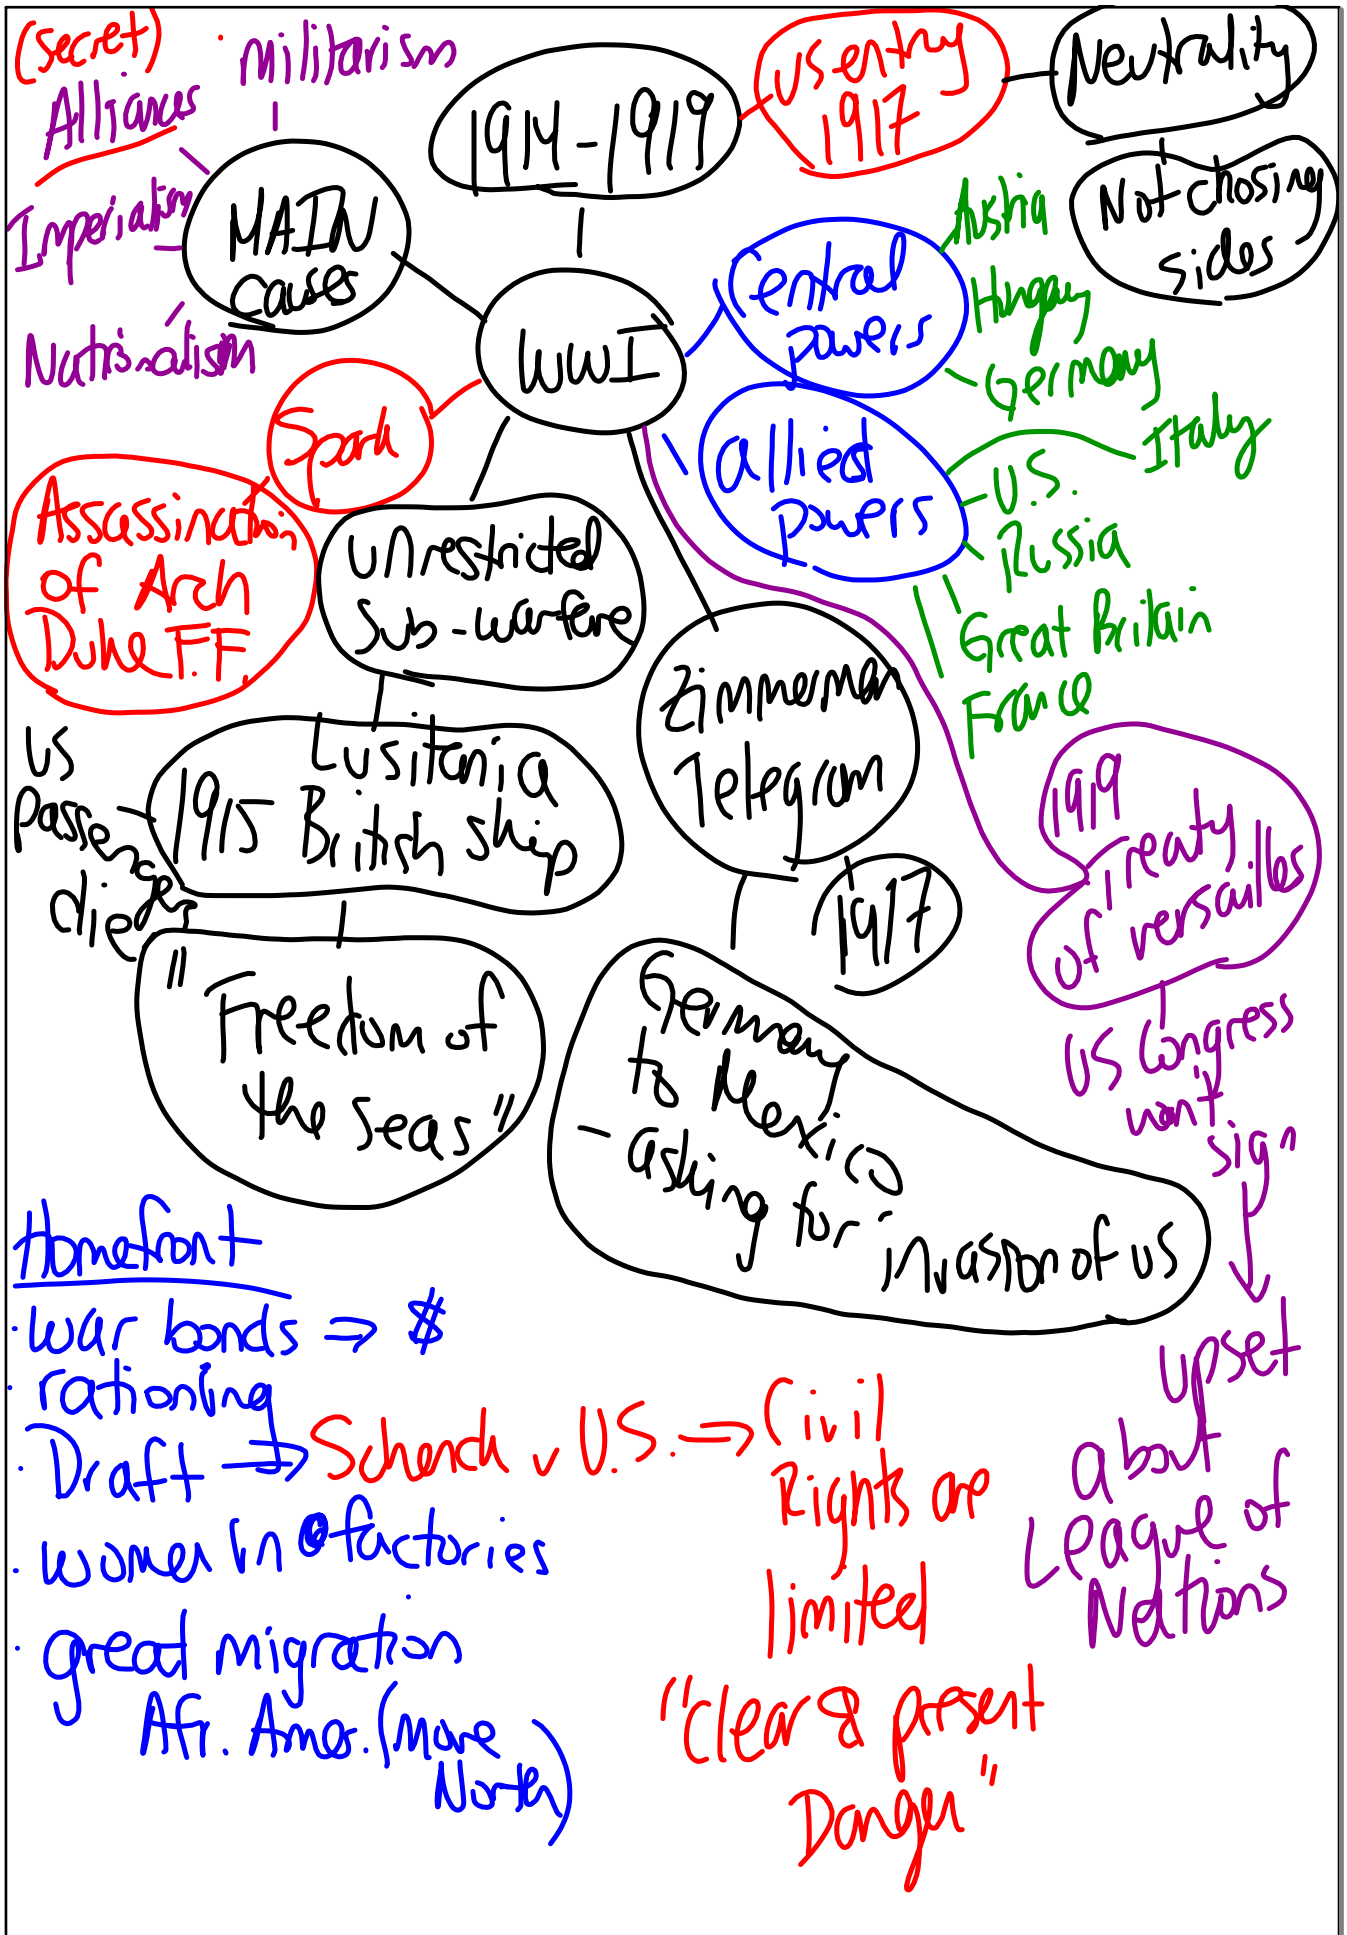 (secret)
Alliances
militarism
Imperialism
Nationalism
MAIN
causes
1914-1919
US entry
1917
Neutrality
Not chosing
sides
WWI
Central
powers
Austria
Hungary
Germany
allied
powers
Italy
U.S.
Russia
Great Britain
France
Spark
Assassination
of Arch
Duke F.F
unrestricted
Sub-warfare
Lusitania
1915 British ship
US
passengers
die
"Freedom of
the seas"
Zimmerman
Telegram
1917
Germany
to Mexico
- asking for
invasion of US
1919
Treaty
of versailles
US Congress
won't
sign
upset
about
League of
Nations
Homefront
· war bonds ⇒ $
· rationing
· Draft → Schenck v U.S. ⇒ Civil
Rights are
limited
"Clear & present
Danger"
· women in factories
· great migration
Afr. Amer. (move
North)